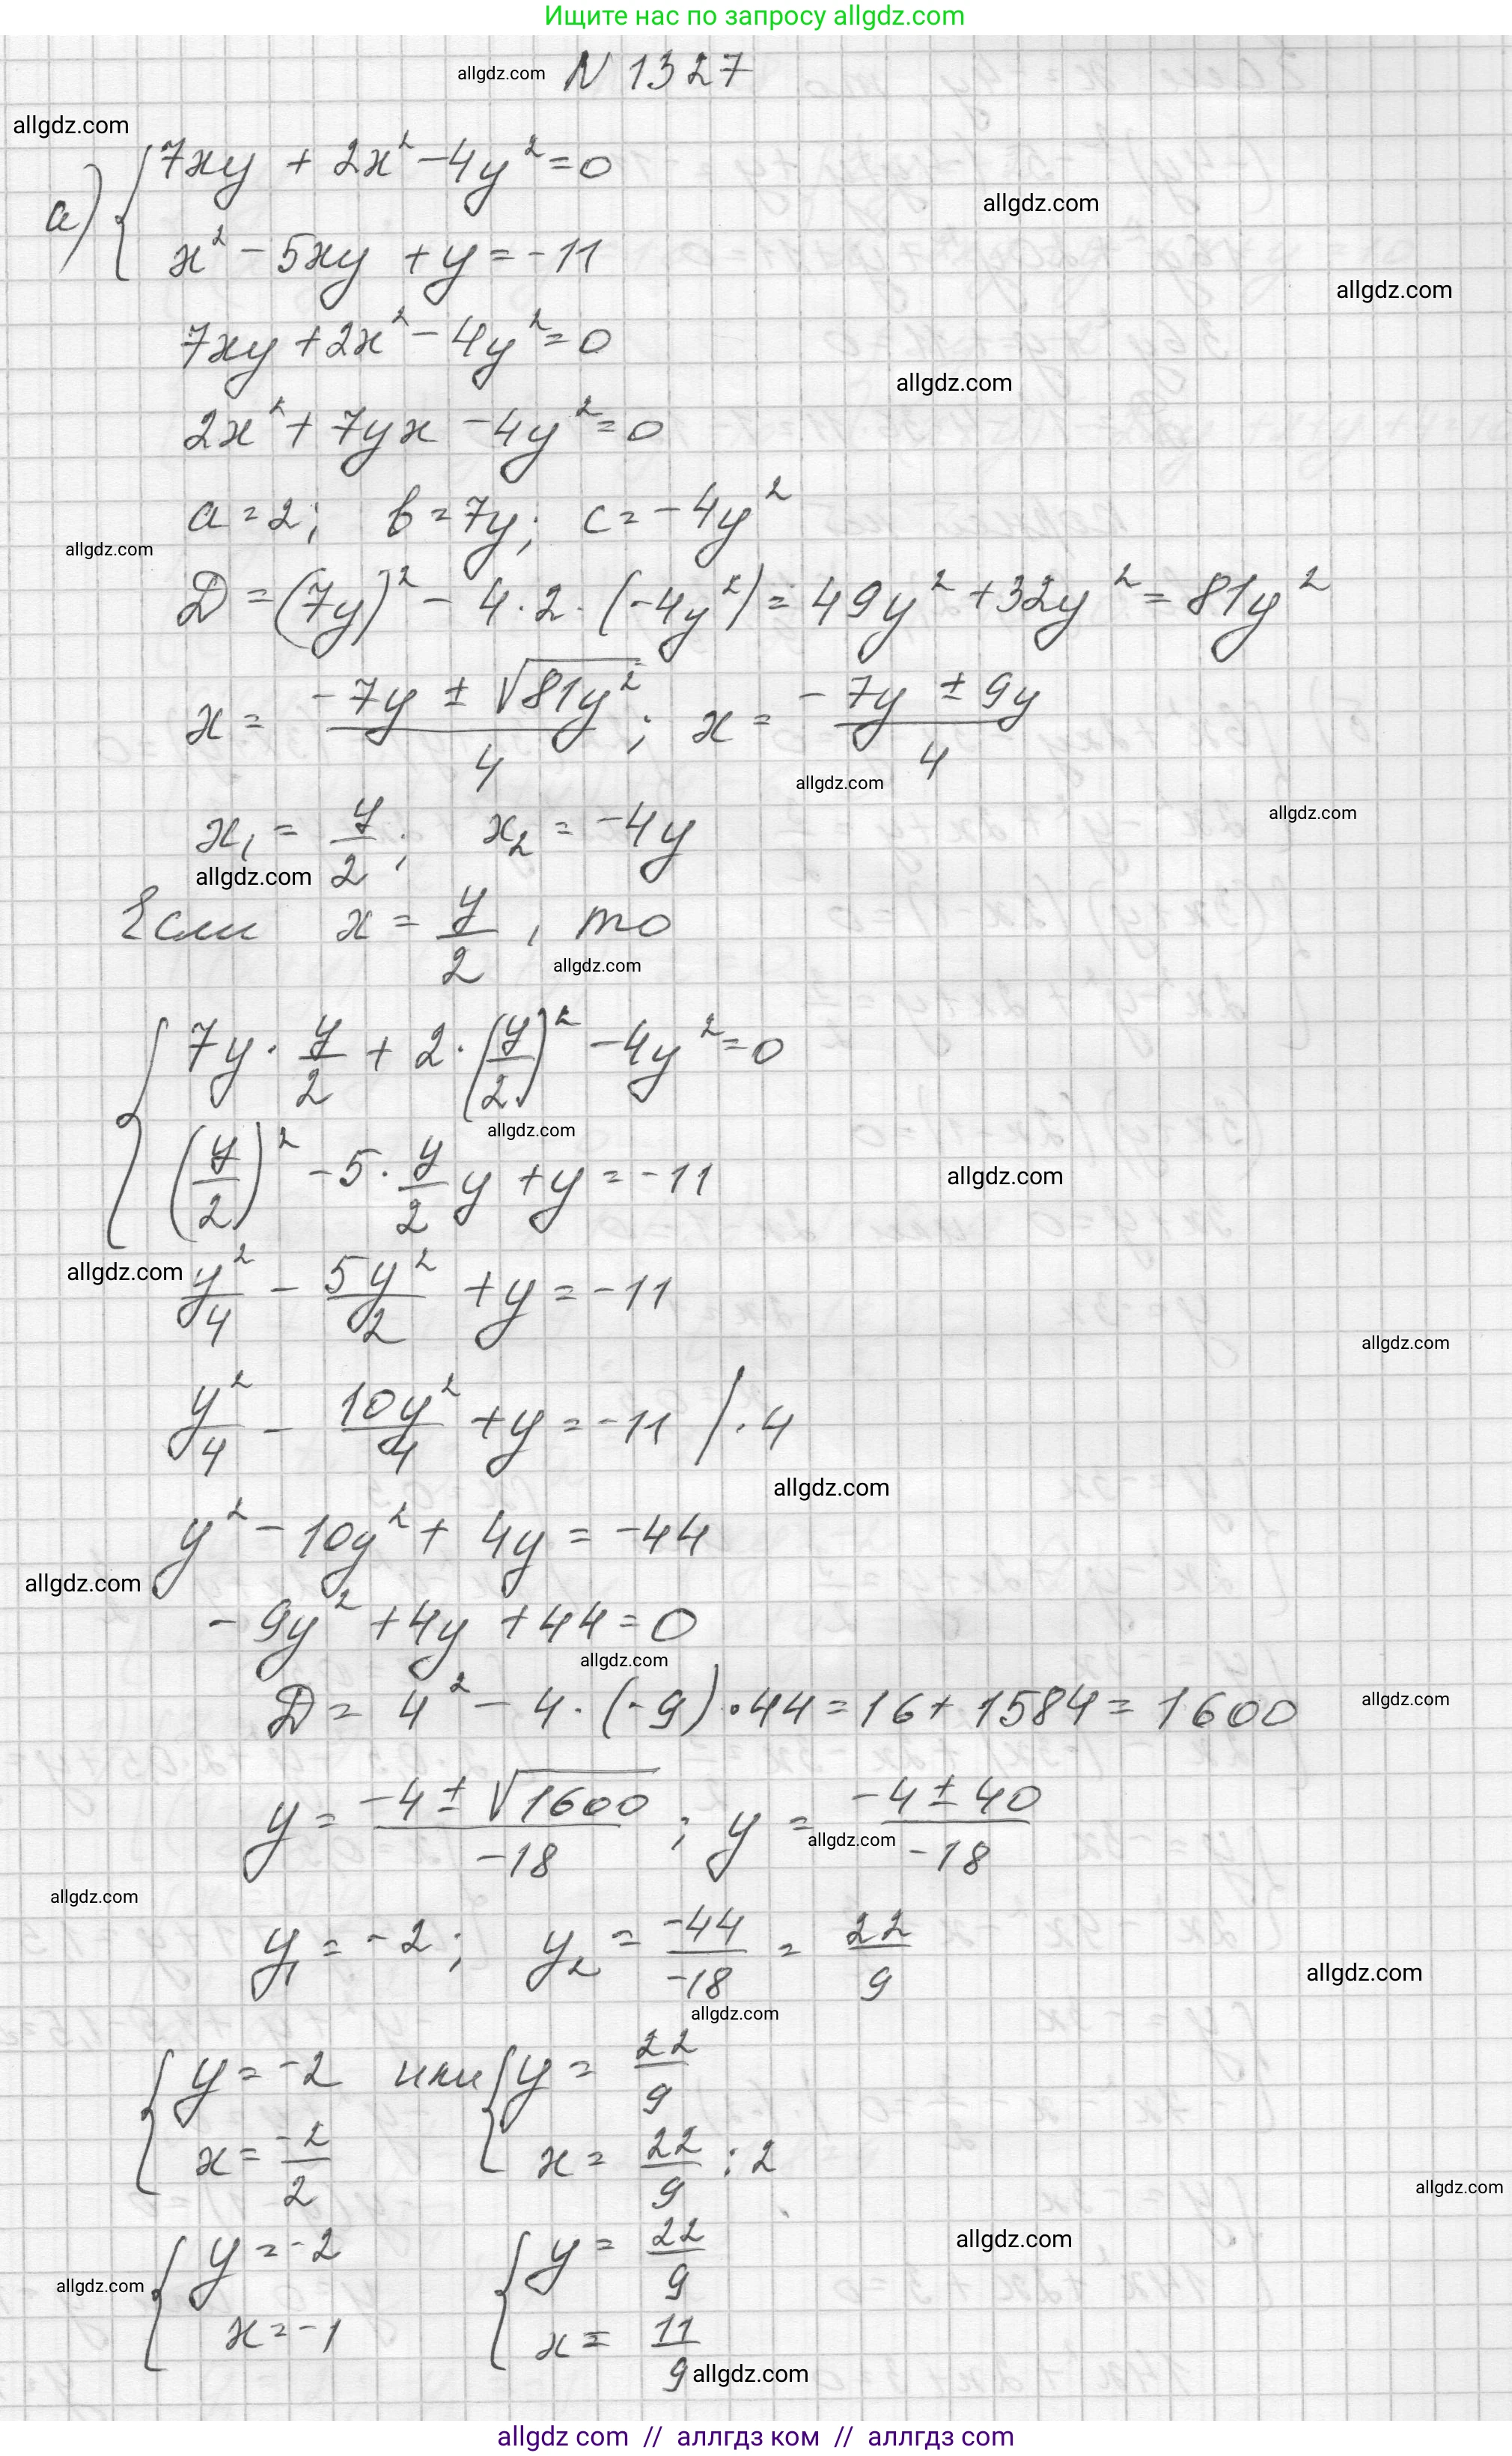 Ищите нас по запросу allgdz.com
allgdz.com N 1327
allgdz.com
а) { 7xy + 2x² - 4y² = 0
allgdz.com
x² - 5xy + y = -11
allgdz.com
7xy + 2x² - 4y² = 0
allgdz.com
2x² + 7yx - 4y² = 0
a = 2; b = 7y; c = -4y²
allgdz.com
D = (7y)² - 4 · 2 · (-4y²) = 49y² + 32y² = 81y²
x = (-7y ± √81y²)/4 ; x = (-7y ± 9y)/4
allgdz.com
allgdz.com
x₁ = y/2 ; x₂ = -4y
allgdz.com
Если x = y/2 , то
allgdz.com
{ 7y · y/2 + 2 · (y/2)² - 4y² = 0
allgdz.com
(y/2)² - 5 · y/2 y + y = -11
allgdz.com
allgdz.com
y²/4 - 5y²/2 + y = -11
allgdz.com
y²/4 - 10y²/4 + y = -11 / · 4
allgdz.com
y² - 10y² + 4y = -44
allgdz.com
-9y² + 4y + 44 = 0
allgdz.com
D = 4² - 4 · (-9) · 44 = 16 + 1584 = 1600
allgdz.com
y = (-4 ± √1600)/-18 ; y = (-4 ± 40)/-18
allgdz.com
allgdz.com
y₁ = -2 ; y₂ = -44/-18 = 22/9
allgdz.com
allgdz.com
{ y = -2 или { y = 22/9
x = -2/2 x = 22/9 : 2
allgdz.com
{ y = -2 { y = 22/9
allgdz.com
allgdz.com
x = -1 x = 11/9
allgdz.com
allgdz com // аллгдз ком // аллгдз com